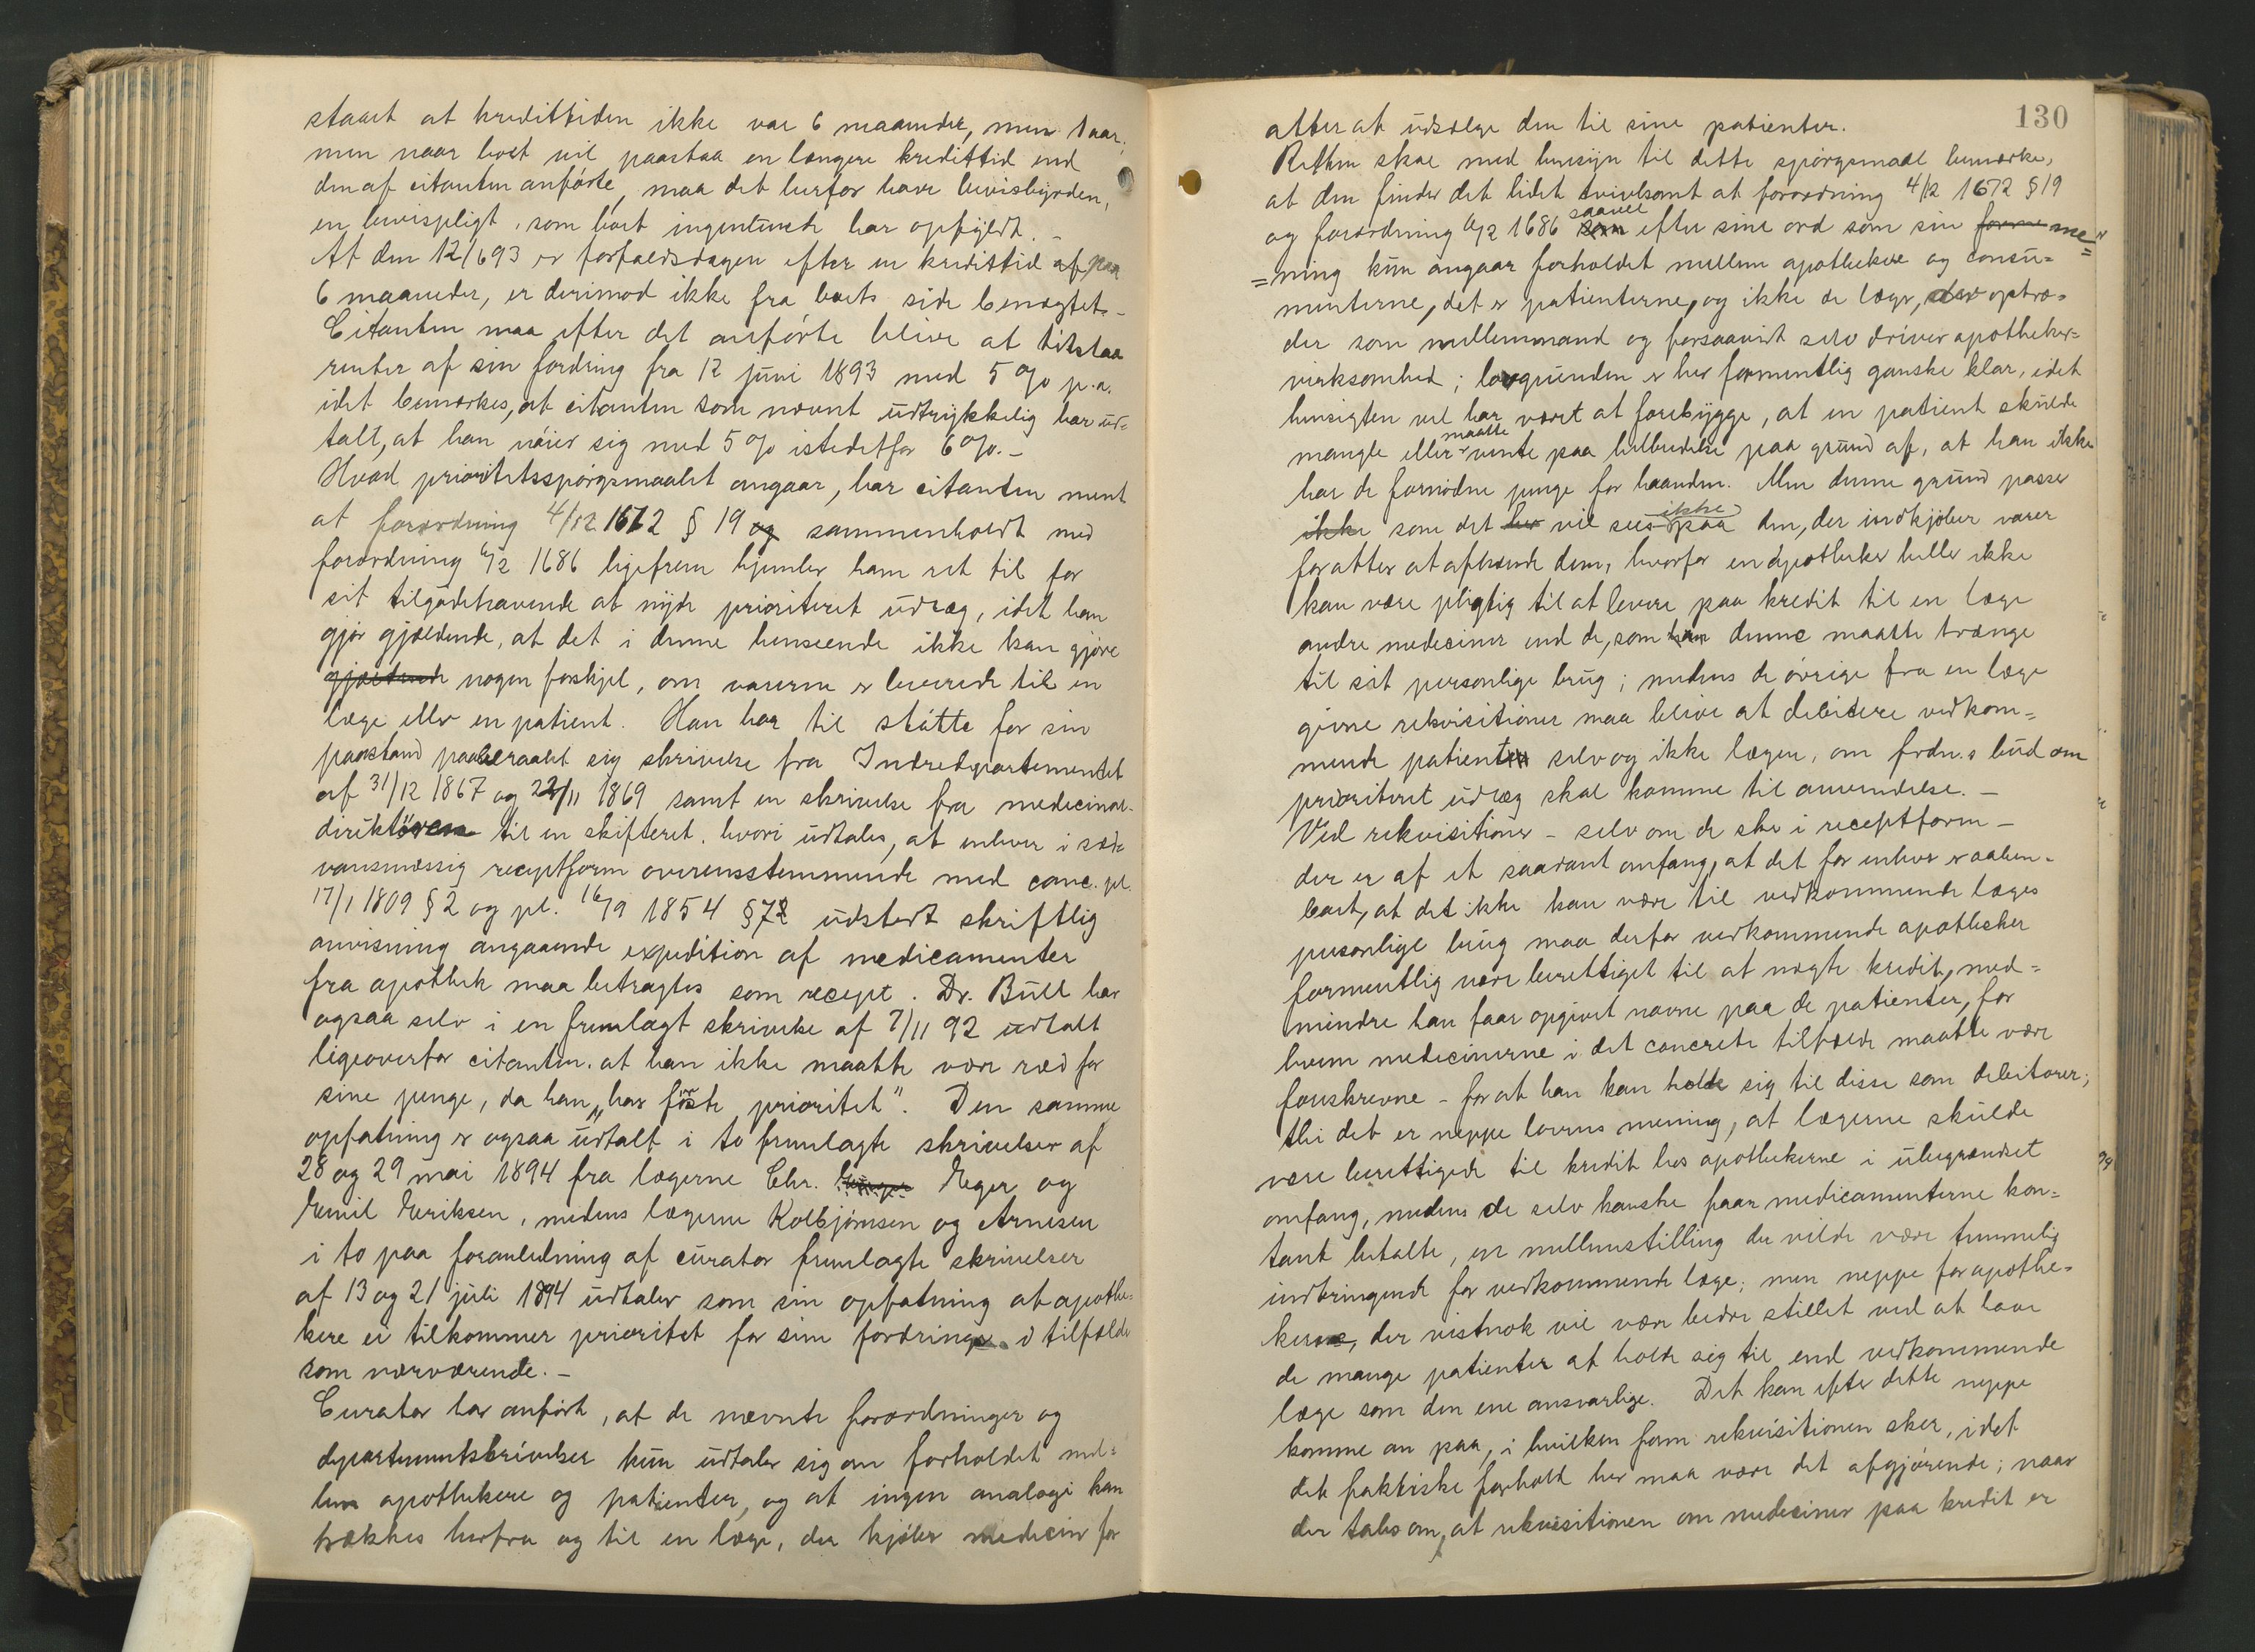 staaet at kredittiden ikke var 6 maaneder, men 1 aar;
men naar boet vil paastaa en længere kredittid end
den af citanten anførte, maa det herfor have bevisbyrden,
en bevispligt, som boet ingenlunde har opfyldt. –
At den 12/6 93 er forfaldsdagen efter en kredittid af paa
6 maaneder, er derimod ikke fra boets side benægtet. –
Citanten maa efter det anførte blive at tilstaa
renter af sin fordring fra 12 juni 1893 med 5 % p.a.
idet bemærkes, at citanten som nævnt udtrykkelig har ud=
talt, at han nøier sig med 5 % istedetfor 6 %. –
Hvad prioritetsspørgsmaalet angaar, har citanten ment
at forordning 4/12 1672 § 19 og sammenholdt med
forordning 6/2 1686 ligefrem hjemler ham ret til for
sit tilgodehavende at nyde prioriteret udlæg, idet han
gjør gjældende, at det i denne henseende ikke kan gjøre
gjældende nogen forskjel, om varerne er leverede til en
læge eller en patient. Han har til støtte for sin
paastand paaberaabt sig skrivelse fra Indredepartementet
af 31/12 1867 og 22/11 1869 samt en skrivelse fra medicinal-
direktøren til en skifteret, hvori udtales, at enhver i sæd=
vansmæssig receptform overensstemmende med canc. pl.
17/1 1809 § 2 og pl. 16/9 1854 § 72 udstedt skriftlig
anvisning angaaende expedition af medicamenter
fra apothek maa betragtes som recept. Dr. Bull har
ogsaa selv i en fremlagt skrivelse af 7/11 92 udtalt
ligeoverfor citanten, at han ikke maatte være ræd for
sine penge, da han „har første prioritet". Den samme
opfatning er ogsaa udtalt i to fremlagte skrivelser af
28 og 29 mai 1894 fra lægerne Chr. Eger og
Emil Eriksen, medens lægerne Kolbjørnsen og Arnesen
i to paa foranledning af curator fremlagte skrivelser
af 13 og 21 juli 1894 udtaler som sin opfatning at apothe=
kere ei tilkommer prioritet for sine fordringer i tilfælde
som nærværende. –
Curator har anført, at de nævnte forordninger og
departementskrivelser kun udtaler sig om forholdet mel=
lem apothekere og patienter, og at ingen analogi kan
trækkes herfra og til en læge, der kjøber medicin for
130
atter at udsælge den til sine patienter.
Retten skal med hensyn til dette spørgsmaal bemærke,
at den finder det lidet tvivlsomt at forordning 4/12 1672 § 19
og forordning 6/2 1686 som saavel efter sine ord som sin forme me=
=ning kun angaar forholdet mellem apothekere og consu=
menterne, det er patienterne, og ikke de læger, der optræ=
der som mellemmand og forsaavidt selv driver apotheker=
virksomhed; lovgrunden er her formentlig ganske klar, idet
hensigten vel har været at forebygge, at en patient skulde
mangle eller maatte vente paa helbredelse paa grund af, at han ikke
har de fornødne penge for haanden. Men denne grund passer
ikke som det her vil sees ikke paa den, der indkjøber varer
for atter at afhænde dem, hvorfor en apotheker heller ikke
kan være pligtig til at levere paa kredit til en læge
andre medeciner end de, som han denne maatte trænge
til sit personlige brug; medens de øvrige fra en læge
givne rekvisitioner maa blive at debitere vedkom=
mende patienten selv og ikke lægen, om frdn.s bud om
prioriteret udlæg skal komme til anvendelse. –
Ved rekvisitioner – selv om de sker i receptform –
der er af et saadant omfang, at det for enhver er aaben=
bart, at det ikke kan være til vedkommende læges
personlige brug maa derfor vedkommende apotheker
formentlig være berettiget til at nægte kredit, med=
mindre han faar opgivet navne paa de patienter, for
hvem medecinerne i det concrete tilfælde maatte være
foreskrevne – for at han kan holde sig til disse som debitorer;
thi det er neppe lovens mening, at lægerne skulde
være berettigede til kredit hos apothekerne i ubegrændset
omfang, medens de selv kanske faar medicamenterne kon=
tant betalte, en mellemstilling der vilde være temmelig
indbringende for vedkommende læge, men neppe for apothe=
kerne, der vistnok vil være bedre stillet ved at have
de mange patienter at holde sig til end vedkommende
læge som den ene ansvarlige. Det kan efter dette neppe
komme an paa, i hvilken form rekvisitionen sker, idet
det faktiske forhold her maa være det afgjørende; naar
der tales om, at rekvisitionen om medeciner paa kredit er